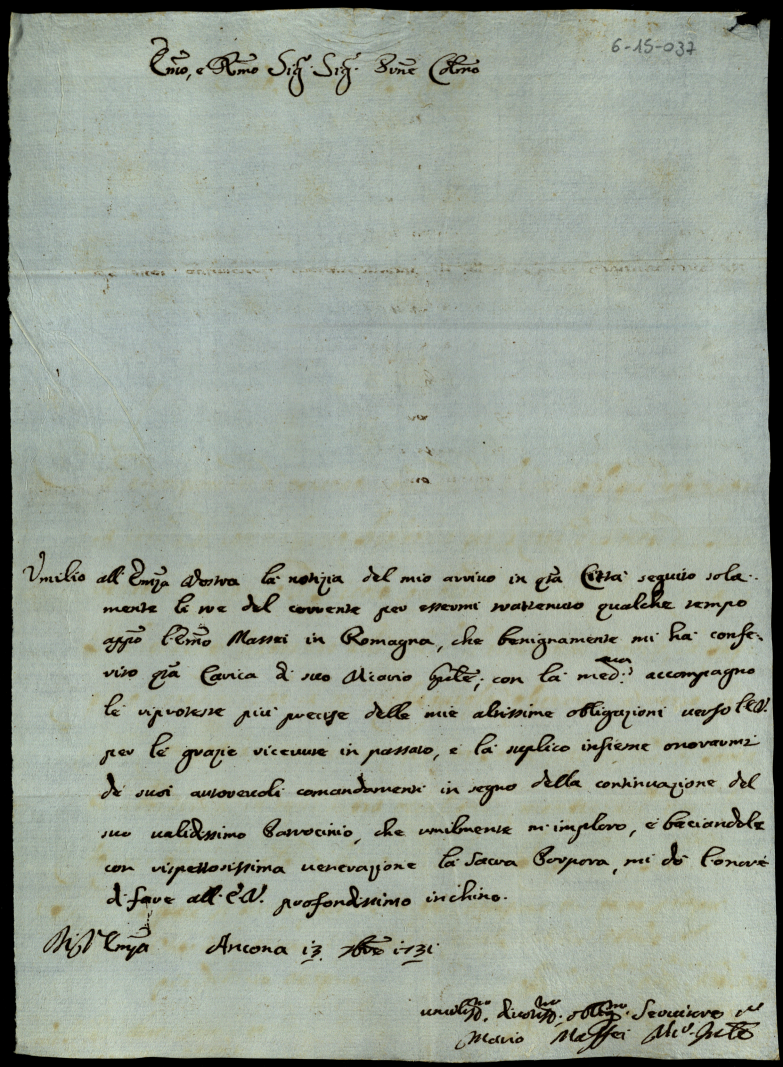 6-15-037
Emo, e Rmo Sig.r Sig.r Pne Colmo
Umilio all'Emza Vostra la notizia del mio arrivo in qta Città seguito sola-
mente li tre del corrente per essermi trattenuto qualche tempo
appo l'Emo Massei in Romagna, che benignamente mi ha confe-
rito qta Carica di suo Vicario Gnle; con la med.ma accompagno
le riproteste più precise delle mie altissime obligazioni verso l'E.V.
per le grazie ricevute in passato, e la suplico insieme onorarmi
de suoi autorevoli comandamenti in segno della continuazione del
suo validissimo Patrocinio, che umilmente m'imploro, e baciandole
con rispettosissima venerazione la Sacra Porpora, mi dò l'onore
di fare all'E.V. profondissimo inchino.
Di V. Emza Ancona 13 7bre 1731
umiliss.mo divotiss.mo obligmo Servitore
Mario Maffei Vic.o Gnle